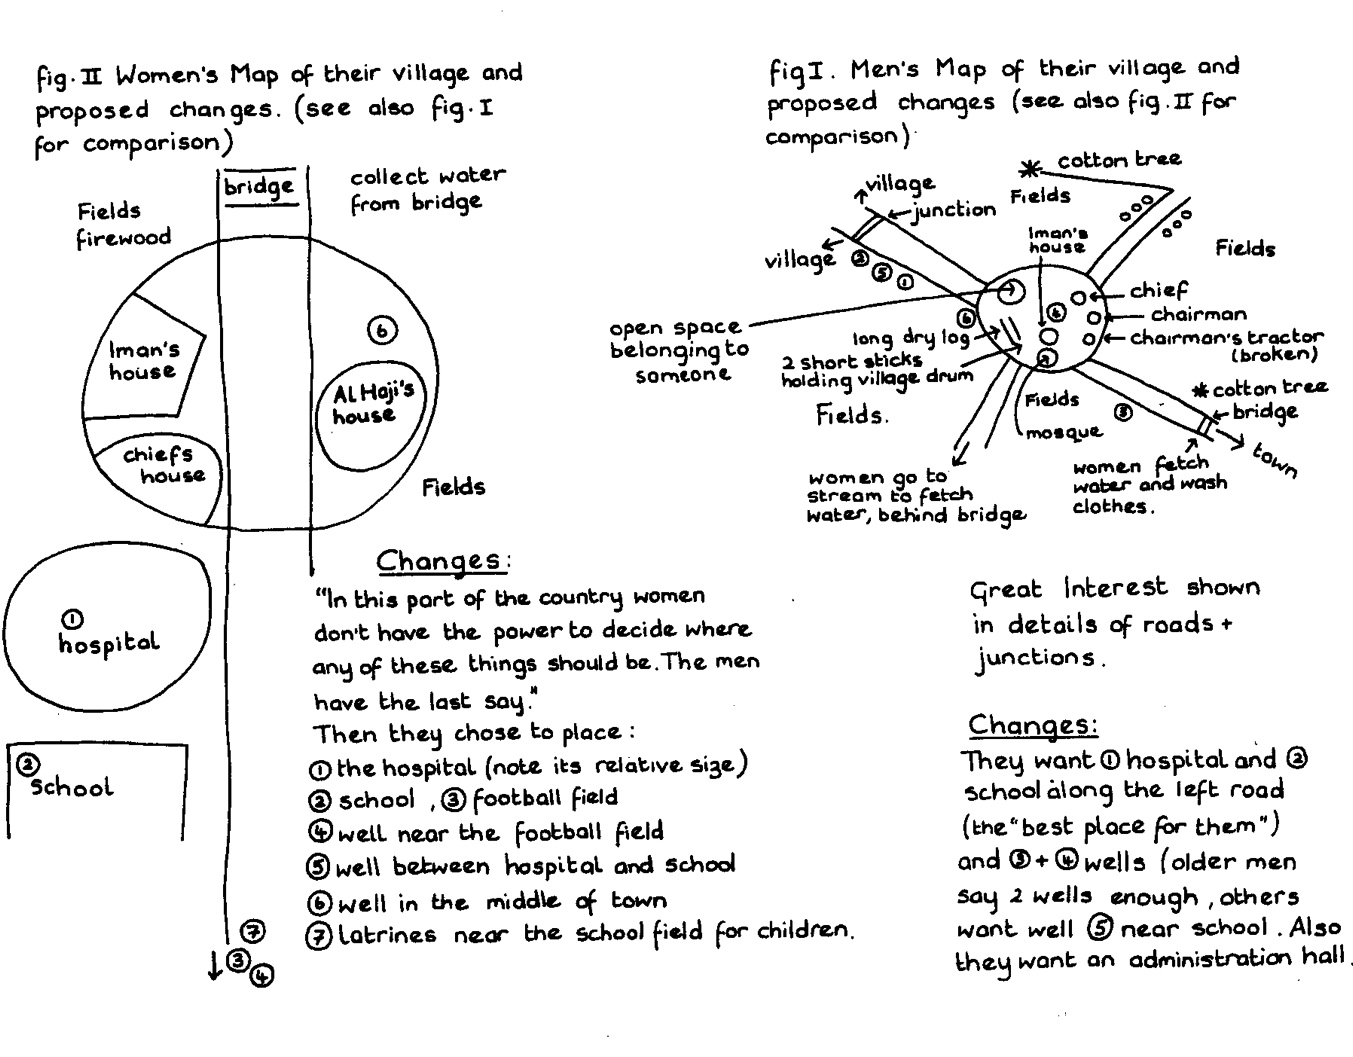 fig. II Women's Map of their village and
proposed changes. (see also fig. I
for comparison)
bridge
collect water
from bridge
Fields
firewood
Iman's
house
6
AL Haji's
house
chiefs
house
Fields
1
hospital
2
School
7
3
4
Changes:
"In this part of the country women
don't have the power to decide where
any of these things should be. The men
have the last say."
Then they chose to place:
1 the hospital (note its relative size)
2 school, 3 football field
4 well near the football field
5 well between hospital and school
6 well in the middle of town
7 Latrines near the school field for children.
fig I. Men's Map of their village and
proposed changes (see also fig. II for
comparison)
cotton tree
village
junction
Fields
Iman's
house
Fields
village
2
5
1
chief
4
6
chairman
open space
belonging to
someone
long dry log
chairman's tractor
(broken)
2 short sticks
holding village drum
2
cotton tree
Fields.
Fields
3
bridge
mosque
town
women go to
stream to fetch
water, behind bridge
women fetch
water and wash
clothes.
Great Interest shown
in details of roads +
junctions.
Changes:
They want 1 hospital and 2
school along the left road
(the "best place for them")
and 3 + 4 wells (older men
say 2 wells enough, others
want well 5 near school. Also
they want an administration hall.